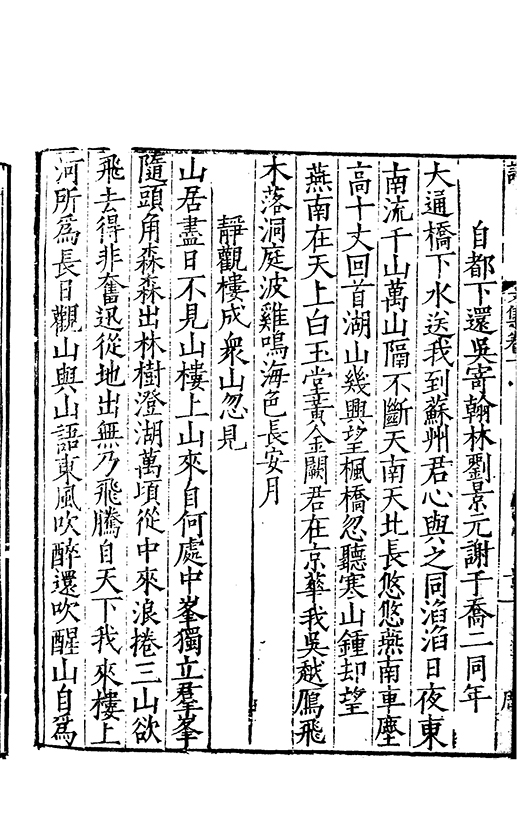 自都下還吳寄翰林劉景元謝于喬二同年
大通橋下水送我到蘇州君心與之同滔滔日夜東
南流千山萬山隔不斷天南天北長悠悠燕南車塵
高十丈回首湖山幾興望楓橋忽聽寒山鍾却望
燕南在天上白玉堂黃金闕君在京華我吳越鴈飛
木落洞庭波雞鳴海色長安月
靜觀樓成衆山忽見
山居盡日不見山樓上山來自何處中峯獨立羣峯
隨頭角森森出林樹澄湖萬頃從中來浪捲三山欲
飛去得非奮迅從地出無乃飛騰自天下我來樓上
河所為長日觀山與山語東風吹醉還吹醒山自為